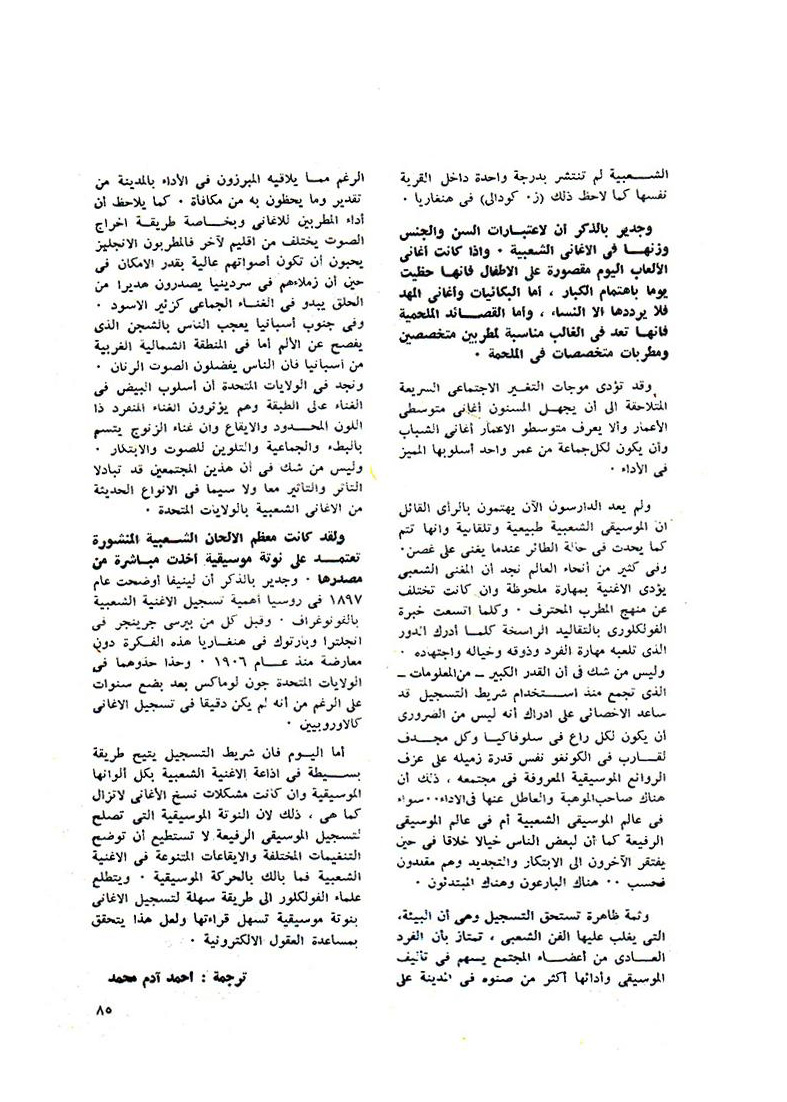 الشـــعبية لم تنتشر بدرجة واحدة داخل القرية
نفسها كما لاحظ ذلك (ز٠ كودالى) فى هنغاريا ٠
وجدير بالذكر أن لاعتبارات السن والجنس
وزنهــا فى الاغانى الشعبية ٠ واذا كانت أغانى
الألعاب اليوم مقصورة على الاطفال فانهـا حظيت
يوما باهتمام الكبار ، أما البكائيات وأغانى المهد
فلا يرددها الا النساء ، وأما القصــائد الملحمية
فانهـا تعد فى الغالب مناسبة لمطربين متخصصين
ومطربات متخصصات فى الملحمة ٠
وقد تؤدى موجات التغير الاجتماعى السريعة
المتلاحقة الى أن يجهـل المسنون أغانى متوسطى
الأعمار وألا يعرف متوسطو الاعمار أغانى الشباب
وأن يكون لكل جماعة من عمر واحد أسلوبها المميز
فى الأداء ٠
ولم يعد الدارسون الآن يهتمون بالرأى القائل
ان الموسيقى الشعبية طبيعية وتلقائية وانها تتم
كما يحدث فى حالة الطائر عندما يغنى على غصن٠
وفى كثير من أنحاء العالم نجد أن المغنى الشعبى
يؤدى الاغنية بمهارة ملحوظة وان كانت تختلف
عن منهج المطرب المحترف ٠ وكلما اتسعت خبرة
الفولكلورى بالتقاليد الراسخة كلمـا أدرك الدور
الذى تلعبه مهارة الفرد وذوقه وخياله واجتهاده ٠
وليس من شك فى أن القدر الكبير ـ من المعلومات ـ
الذى تجمع منذ اســتخدام شريط التسجيل قد
ساعد الاخصائى على ادراك أنه ليس من الضرورى
أن يكون لكل راع فى سلوفاكيـا وكل مجـدف
لقـارب فى الكونغو نفس قدرة زميله على عزف
الروائع الموسيقية المعروفة فى مجتمعه ، ذلك أن
هناك صاحب الموهبة والعاطل عنها فى الاداء٠٠سواء
فى عالم الموسيقى الشعبية أم فى عالم الموسيقى
الرفيعة كما أن لبعض الناس خيالا خلاقا فى حين
يفتقر الآخرون الى الابتكار والتجديد وهم مقلدون
فحسب ٠٠ هناك البارعون وهناك المبتدئون ٠
وثمة ظاهرة تستحق التسجيل وهى أن البيئة،
التى يغلب عليها الفن الشعبى ، تمتاز بأن الفرد
العــادى من أعضــاء المجتمع يسهم فى تأليف
الموسيقى وأدائها أكثر من صنوه فى المدينة على
الرغم ممـا يلاقيه المبرزون فى الأداء بالمدينة من
تقدير وما يحظون به من مكافأة ٠ كما يلاحظ أن
أداء المطربين للاغانى وبخـاصة طريقـة اخراج
الصوت يختلف من اقليم لآخر فالمطربون الانجليز
يحبون أن تكون أصواتهم عالية بقدر الامكان فى
حين أن زملاءهم فى سردينيا يصدرون هديرا من
الحلق يبدو فى الغنـاء الجماعى كزئير الاسود ٠
وفى جنوب أسبانيا يعجب الناس بالشجن الذى
يفصح عن الألم أما فى المنطقة الشمالية الغربية
من أسبانيا فان الناس يفضلون الصوت الرنان ٠
ونجد فى الولايات المتحدة أن أسلوب البيض فى
الغناء عالى الطبقة وهم يؤثرون الغناء المنفرد ذا
اللون المحـدود والايقاع وان غناء الزنوج يتسم
بالبطء والجماعية والتلوين للصوت والابتكار ٠
وليس من شك فى أن هذين المجتمعين قد تبادلا
التأثر والتأثير معا ولا سيما فى الانواع الحديثة
من الاغانى الشعبية بالولايات المتحدة ٠
ولقد كانت معظم الالحان الشـعبية المنشورة
تعتمــد على نوتة موسيقية أخذت مبـاشرة من
مصدرها ٠ وجدير بالذكر أن لينيفا أوضحت عام
١٨٩٧ فى روسيا أهمية تسجيل الاغنية الشعبية
بالفونوغراف ٠ وقبل كل من بيرسى جرينجر فى
انجلترا وبارتوك فى هنغـاريا هذه الفـكرة دون
معارضة منذ عــام ١٩٠٦ ٠ وحذا حذوهمـا فى
الولايات المتحدة جون لوماكس بعد بضع سنوات
على الرغم من أنه لم يكن دقيقا فى تسجيل الاغانى
كالاوروبيين ٠
أما اليـوم فان شريط التسجيل يتيح طريقة
بســيطة فى اذاعة الاغنية الشعبية بكل ألوانها
الموسيقية وان كانت مشكلات نسخ الأغانى لاتزال
كما هى ، ذلك لان النوتة الموسيقية التى تصلح
لتسجيل الموسيقى الرفيعة لا تستطيع أن توضح
التنغيمات المختلفة والايقاعات المتنوعة فى الاغنية
الشعبية فما بالك بالحركة الموسيقية ٠ ويتطلع
علماء الفولكلور الى طريقة سهلة لتسجيل الاغانى
بنوتة موسيقية تسهل قراءتها ولعل هذا يتحقق
بمساعدة العقول الالكترونية ٠
ترجمة : احمد آدم محمد
٨٥